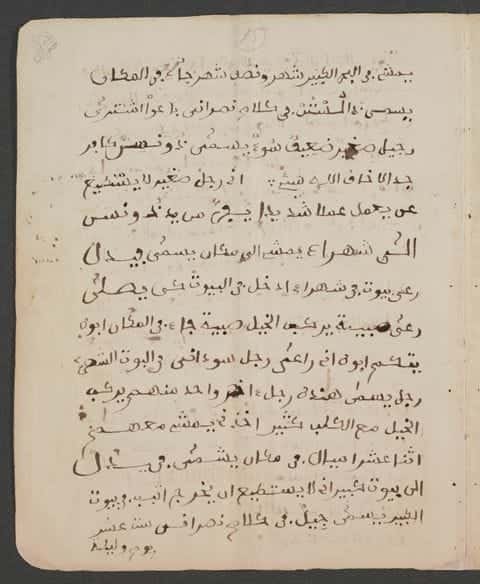 يمشي في البحر الكبير شهر ونصف شهر جاء في المكان
يسمى في كلام نصراني باعوا اشترى
رجيل صغير ضعيف سوء يسمى كافر
جدا لا خاف الله شيئا اني رجل صغير لا يستطيع
عن يعمل عملا شديدا يفر من يد
شهراء يمشي الى مكان يسمى فيدل
رءى بيوت في شهراء ادخل في البيوت كى يصلى
رءى صبية يركب الخيل صبية جاء في المكان ابوه
يتكلم ابوه اني راءى رجل سودانى في البيوت
رجل يسمى هنده رجل ءاخر واحد منهم يركب
الخيل مع الكلب كثير اخذني يمشي معهم
اثنا عشرا ميلا في مكان يسمى فيدل
الى بيوت كبير اني لا يستطيع ان يخرج في بيوت
الكبير يسمى جيل في كلام نصراني ست عشر
يوم وليلة